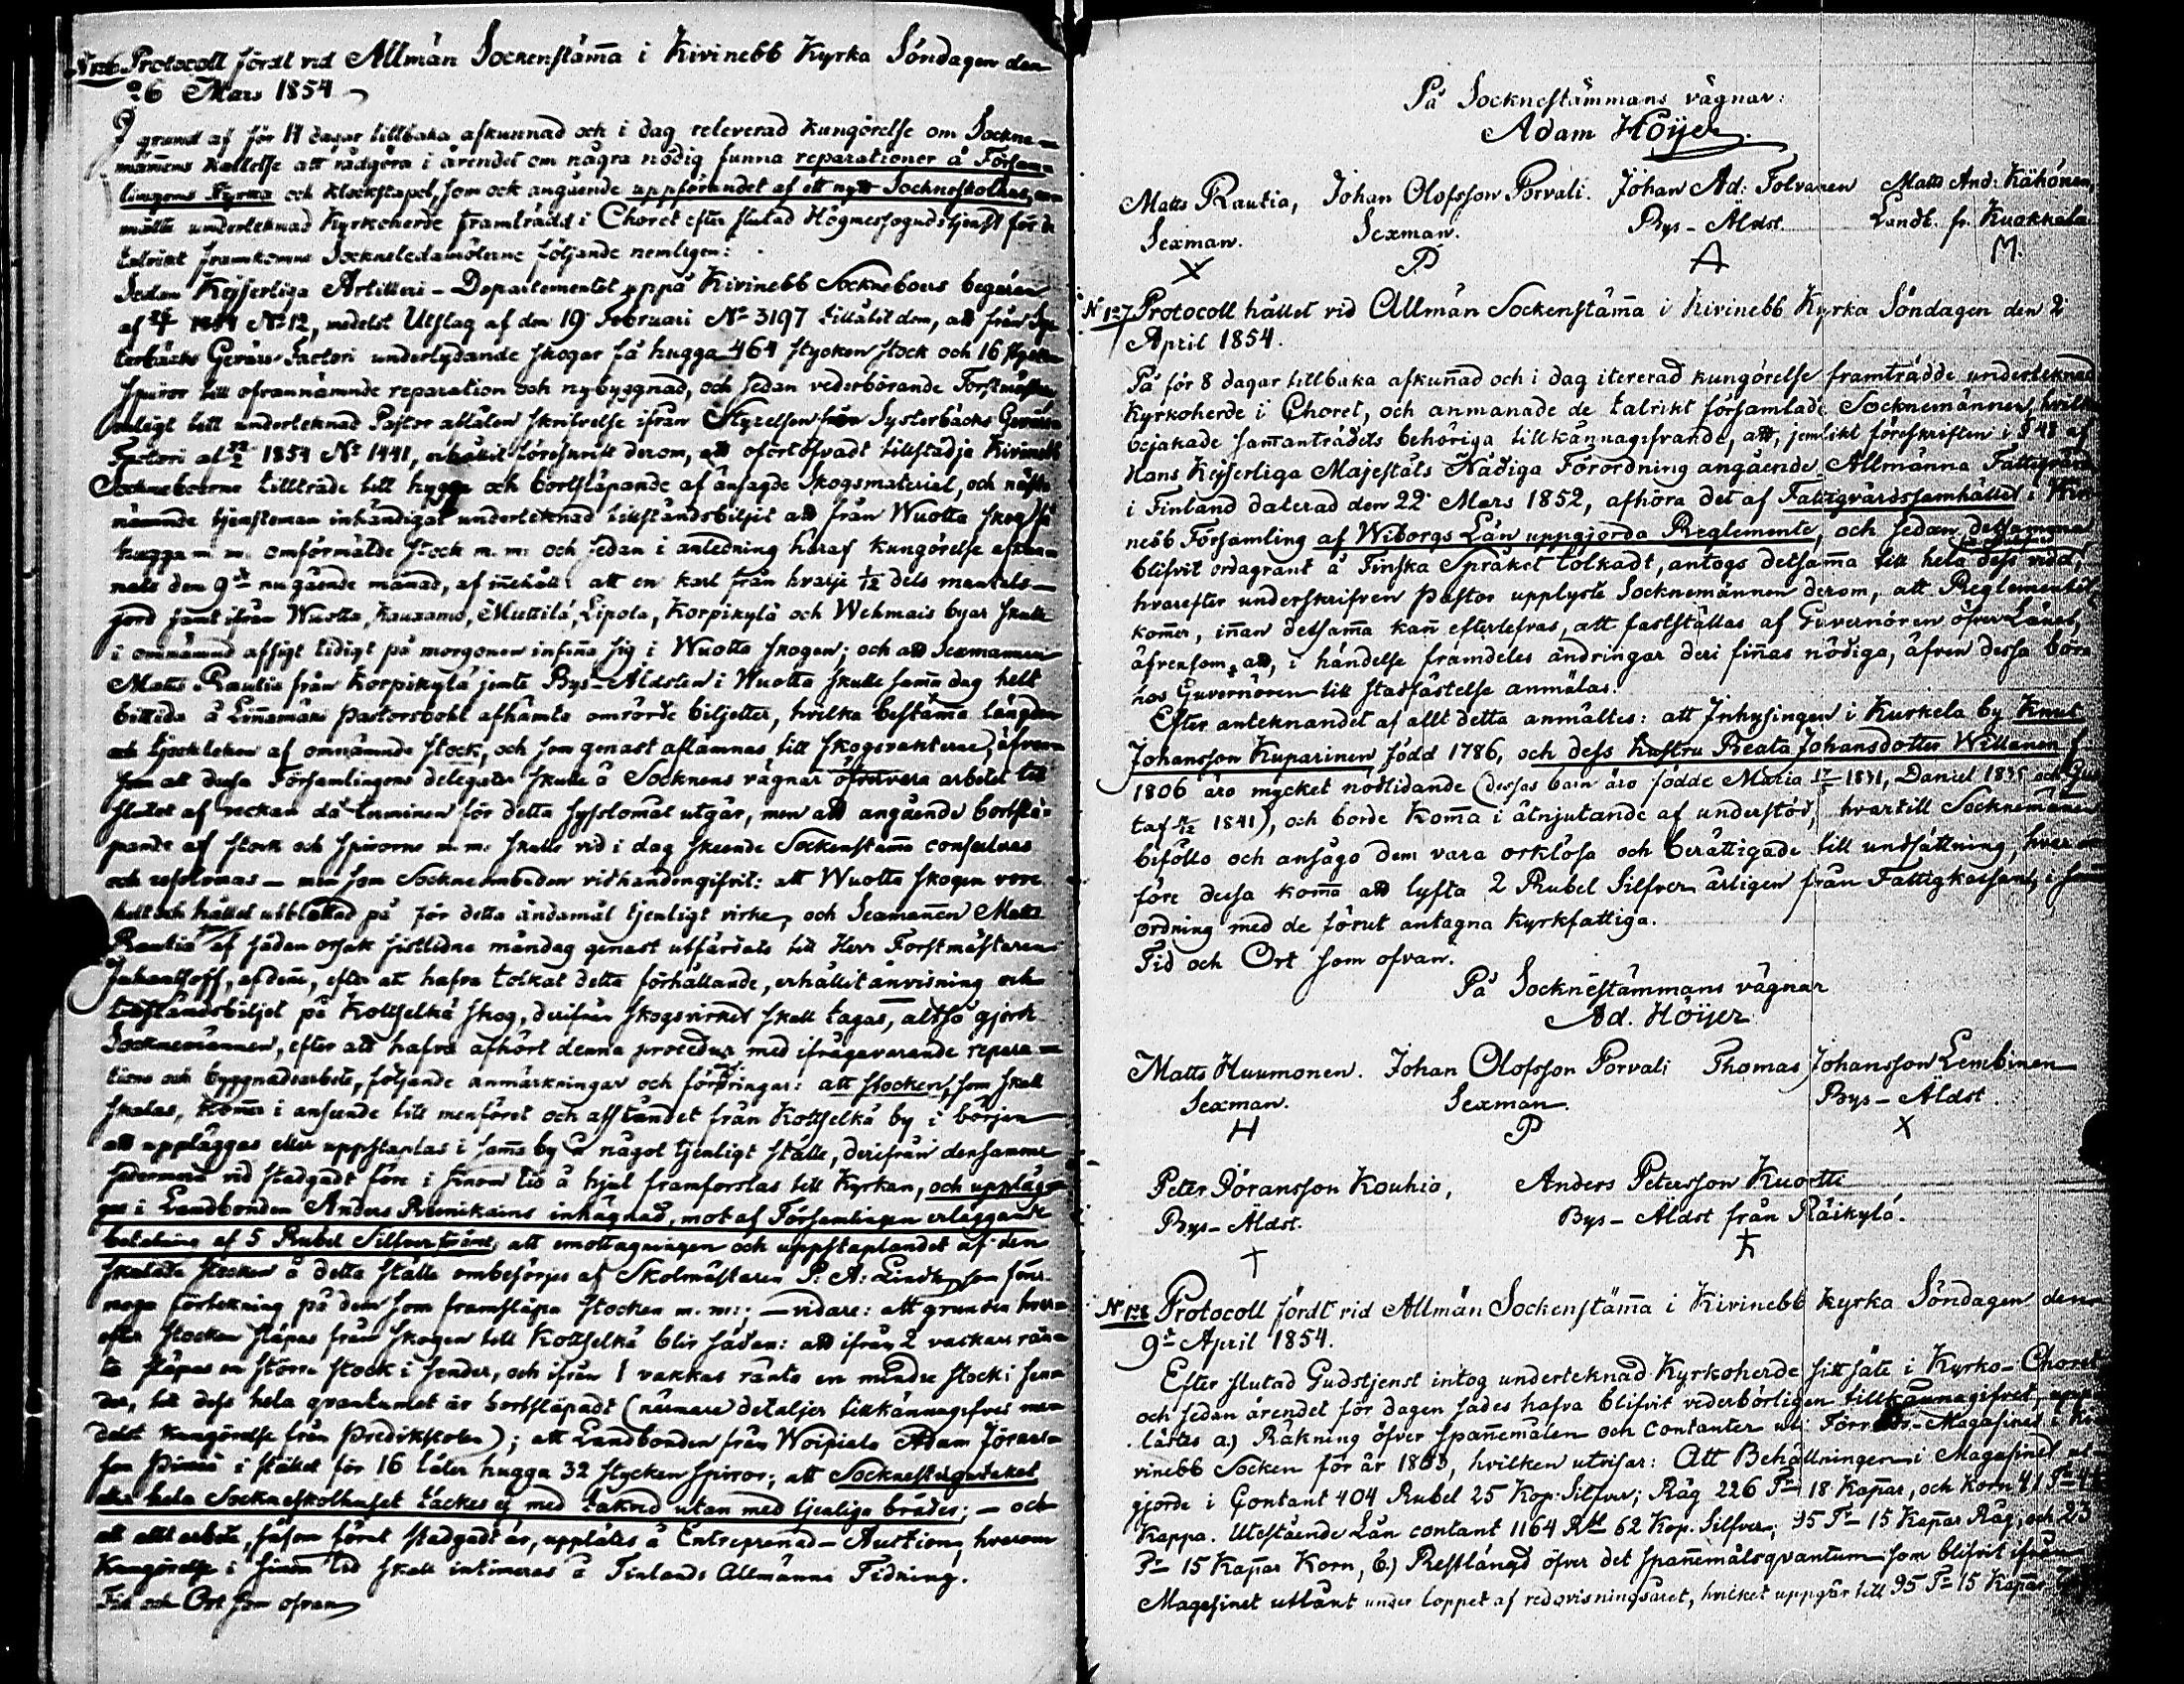 N 126 Protocoll fördt vid Allmän Sockenstäm̄a i Kivinebb Kyrka Söndagen den
26 Mars 1854
I grund af för 14 dagar tillbaka afkunnad och i dag releverad kungörelse om Sockne-
män̄ens kallelse att rådgöra i ärendet om några nödig funna reparationer å Försam-
lingens Kyrka och klockstapel, som ock angående uppförandet af ett nytt Sockneskolhus,
måtte underteknad Kyrkoherde framträdd i Choret efter slutad Högmessogudstjenst för de
talrikt framkomne Sockneledamöterne följande nemligen:
Sedan Kejserliga Artilleri-Departementet uppå Kivinebb Socknebors begäran
af 1854 No 12, medelst Utslag af den 19 Februari No 3197 tillåtit dem, att från Sys-
terbäcks Gevärs-Factori underlydande skogar få hugga 464 stycken stock och 16 stycken
spiror till ofvannämnde reparation och nybyggnad, och sedan vederbörande Forstmästare
enligt till underteknad Pastor ablåten skrifvelse ifrån Styrelsen för Systerbäcks Gevärs-
Factori af 1854 No 1441, erhållit föreskrift derom, att ofortöfvadt tillstädja Kivinebb
Socknеboerne tillträde till hygge och bortsläpande af ansagde Skogsmaterial, och näst-
nämnde tjensteman inhändigat underteknad tillståndsbiljet att från Wuotta skog få
hugga m. m. omförmälde stock m. m: och sedan i anledning häraf kungörelse afkun-
nats den 9de nugående månad, af in̄ehåll: att en karl från hvarje 1/12 dels mantals-
jord samt ifrån Wuotta, Kauxamo, Muttilä, Lipola, Korpikylä och Wehmais byar skulle
i omnämnd afsigt tidigt på morgonen infin̄a sig i Wuotta skogen; och att Sexmannen
Matts Rautia från Korpikylä jemte Bys-Äldsten i Wuotta skulle sam̄a dag helt
bittida å Lin̄amäki pastorsbohl afhämta omrörde biljetter, hvilka bestäm̄a längden
och tjockleken af omnämnde stock, och som genast aflämnas till skogsvakterne, äfven-
som att dessa Församlingens delegater skulle å Socknens vägnar öfvervara arbetet till
slutet af veckan då terminen för detta sysslomål utgår, men att angående bortslä-
pande af stock och spirorne m. m: skulle vid i dag skeende Sockenstäm̄a consuleras
och resolveras — men som Sockneombuden vidhandengifvit: att Wuotta skogen vore
helt och hållet utblottad på för detta ändamål tjenligt virke, och Sexman̄en Matts
Rautia af sådan orsak sistlidne måndag genast utfärdats till Herr Forstmästaren
Juhantsoff, af dem, efter att hafva tolkat detta förhållande, erhållit anvisning och
tillståndsbiljet på Kottselkä skog, derifrån skogsvirket skall tagas, altså gjorde
Socknemännen, efter att hafva afhört denna procedur med ifrågavarande repara-
tions och byggnadsarbete, följande anmärkningar och fordringar: att stocken, som skall
skalas, kom̄er i anseende till menföret och afståndet från Kottselkä by i början
att uppläggas eller uppstaplas i sam̄a by å något tjenligt ställe, derifrån densamme
sedermera vid stadgadt före i sinom tid å hjul framforslas till Kyrkan, och uppläg-
ges i Landbonden Anders Reinikains inhägnad, mot af Församlingen erläggande
betalning af 5 Rubel Silfver; att emottagningen och uppstaplandet af den
skalade stocken å detta ställe ombesörjes af Skolmästaren P: A: Lindh, som föres
noga förtekning på dem som framsläpa stocken m. m:; — vidare: att grunden hvar-
efter stocken släpas från skogen till Kottselkä blir sådan: att ifrån 2 vackars rän-
ta släpas en större stock i sender, och ifrån 1 vakkas ränta en mindre stock i sen-
der, till dess hela qvantumet är bortsläpadt (närmare detaljer tillkännagifves me-
delst kungörelse från Predikstolen); att Landbonden från Woipiala Adam Jörans-
son i stället för 16 låter hugga 32 stycken spiror; att
eller hela Sockneskolhuset täckes ej med taknd utan med tjenliga bräder; — och
att allt arbete, såsom förut stadgadt är, upplåtes å Entreprenad-Auction, hvarom
Kungörelse i sinom tid skall intimeras i Finlands Allmänna Tidning.
Tid och Ort som ofvan
På Socknestämmans vägnar:
Adam Höijer
Matts Rautia, Johan Olofsson Porvali. Johan Ad: Tolvanen Matts And: Kähönen,
Sexman. Sexman. Bys-Äldst. Landb. fr. Kuokkala
X P A M.
N 127 Protocoll hållet vid Allmän Sockenstäm̄a i Kivinebb Kyrka Söndagen den 2
April 1854.
På för 8 dagar tillbaka afkun̄ad och i dag itererad kungörelse framträdde underteknad
Kyrkoherde i Choret, och anmanade de talrikt församlade Socknemännen, hvilka
bejakade sam̄anträdets behöriga tillkännagifvande, att, jemlikt föreskriften i § 48 af
Hans Kejserliga Majestäts Nådiga Förordning angående Allmänna Fattigvård
i Finland daterad den 22 Mars 1852, afhöra det af Fattigvårdssamhället i Kivi-
nebb Församling af Wiborgs Län uppgjorda Reglemente, och sedan detsamma
blifvit ordagrant å Finska Språket tolkadt, antogs detsam̄a till hela dess vidd,
hvarefter underskrifven Pastor upplyste Socknemännen derom, att Reglementet
kom̄er, in̄an detsam̄a kan̄ efterlefvas, att fastställas af Guvernören öfver Länet,
äfvensom, att, i händelse framdeles ändringar deri fin̄as nödiga, äfven dessa böra
hos Guvernören till stadfästelse anmälas.
Efter anteknandet af allt detta anmältes: att Inhysingen i Kurkela by Knut
Johansson Kuparinen, född 1786, och dess hustru Beata Johansdotter Willanen f.
1806 äro mycket nödlidande (dessas barn äro födde Maria 1831, Daniel 1835 och Gus-
taf 1841), och borde kom̄a i åtnjutande af understöd, hvartill Socknemännen
biföllo och ansågo dem vara orklösa och berättigade till undsättning, hvar-
före dessa kom̄a att lyfta 2 Rubel Silfver årligen från Fattigkassan, i
ordning med de förut antagna Kyrkfattiga.
Tid och Ort som ofvan.
På Socknestämmans vägnar
Ad. Höijer
Matts Huumonen. Johan Olofsson Porvali Thomas Johansson Lembinen
Sexman. Sexman. Bys-Äldst.
H P X
Peter Jöransson Kouhia, Anders Petersson Kuortti
Bys-Äldst. Bys-Äldst från Räikylä.
N 128 Protocoll fördt vid Allmän Sockenstäm̄a i Kivinebb Kyrka Söndagen den
9de April 1854.
Efter slutad Gudstjenst intog underteknad Kyrkoherde sitt säte i Kyrko-Choret
och sedan ärendet för dagen sades hafva blifvit vederbörligen tillkännagifvet, upp-
lästes a.) Räkning öfver span̄emålen och contanter uti Förråds-Magasinet i Ki-
vinebb Socken för år 1853, hvilken utvisar: Att Behållningen i Magasinet ut-
gjorde i Contant 404 Rubel 25 Kop: Silfver; Råg 226 Tr 18 Kap̄ar, och Korn 41 Tr
Kappa. Utestående Lån contant 1164 Rbl 62 Kop. Silfver; 95 Tr 15 Kap̄ar Råg, och 23
Tr 15 Kap̄ar Korn, b.) Restlängd öfver det span̄emålsqvantum som blifvit ifrån
Magasinet utlånt under loppet af redovisningsåret, hvilket uppgår till 95 Tr 15 Kap̄ar